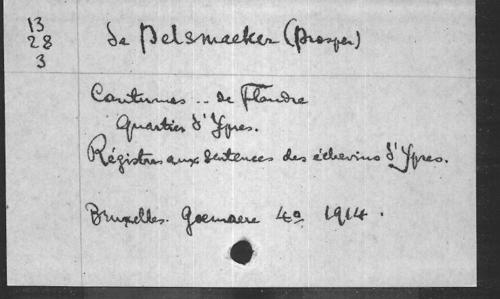 13
28
3
de Pelsmaeker (Prosper)
Coutumes .. de Flandre
Quartier d'Ypres.
Régistres aux sentences des échevins d'Ypres.
Bruxelles. Goemaere 4º 1914.